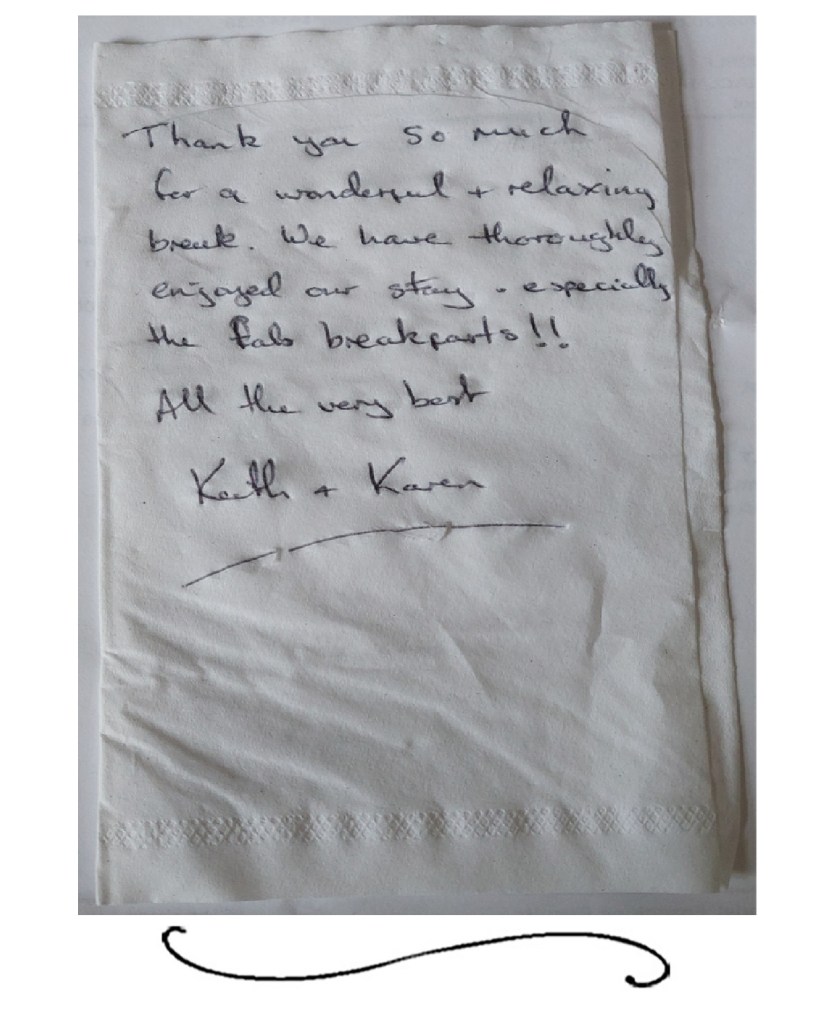 Thank you so much
for a wonderful + relaxing
break. We have thoroughly
enjoyed our stay - especially
the fab breakfasts!!
All the very best
Keith + Karen